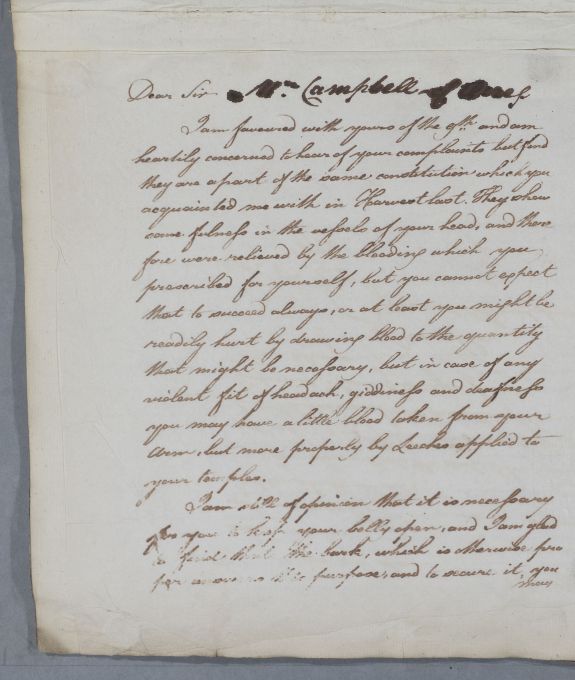 Dear Sir Mr. Campbell of
I am favoured with yours of the 9th. and am
heartily concerned to hear of your complaints but find
they are a part of the same constitution which you
acquainted me with in Harvest last. They shew
some fulness in the vessels of your head, and there
fore were relieved by the bleeding which you
prescribed for yourself, but you cannot expect
that to succeed always, or at least you might be
readily hurt by drawing blood to the quantity
that might be necessary, but in case of any
violent fit of headach, giddiness and deafness
you may have a little blood taken from your
arm, but more properly by Leeches applied to
your temples.
I am still of opinion that it is necessary
for you to keep your belly open, and I am glad
to find that the bark, which is otherwise pro
per answers this purpose, and to secure it, you